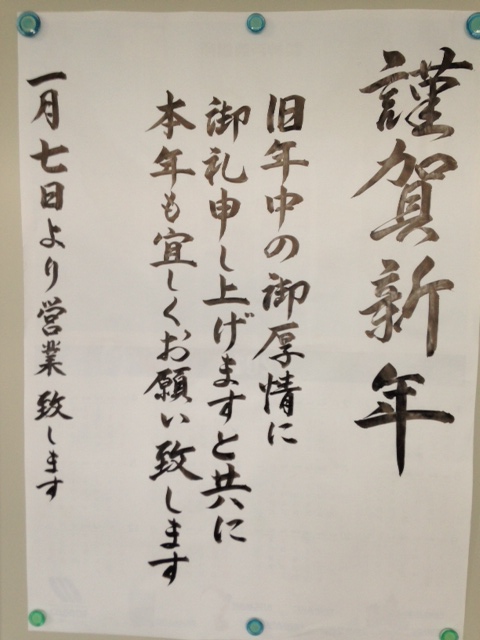 謹賀新年
旧年中の御厚情に
御礼申し上げますと共に
本年も宜しくお願い致します
一月七日より営業致します